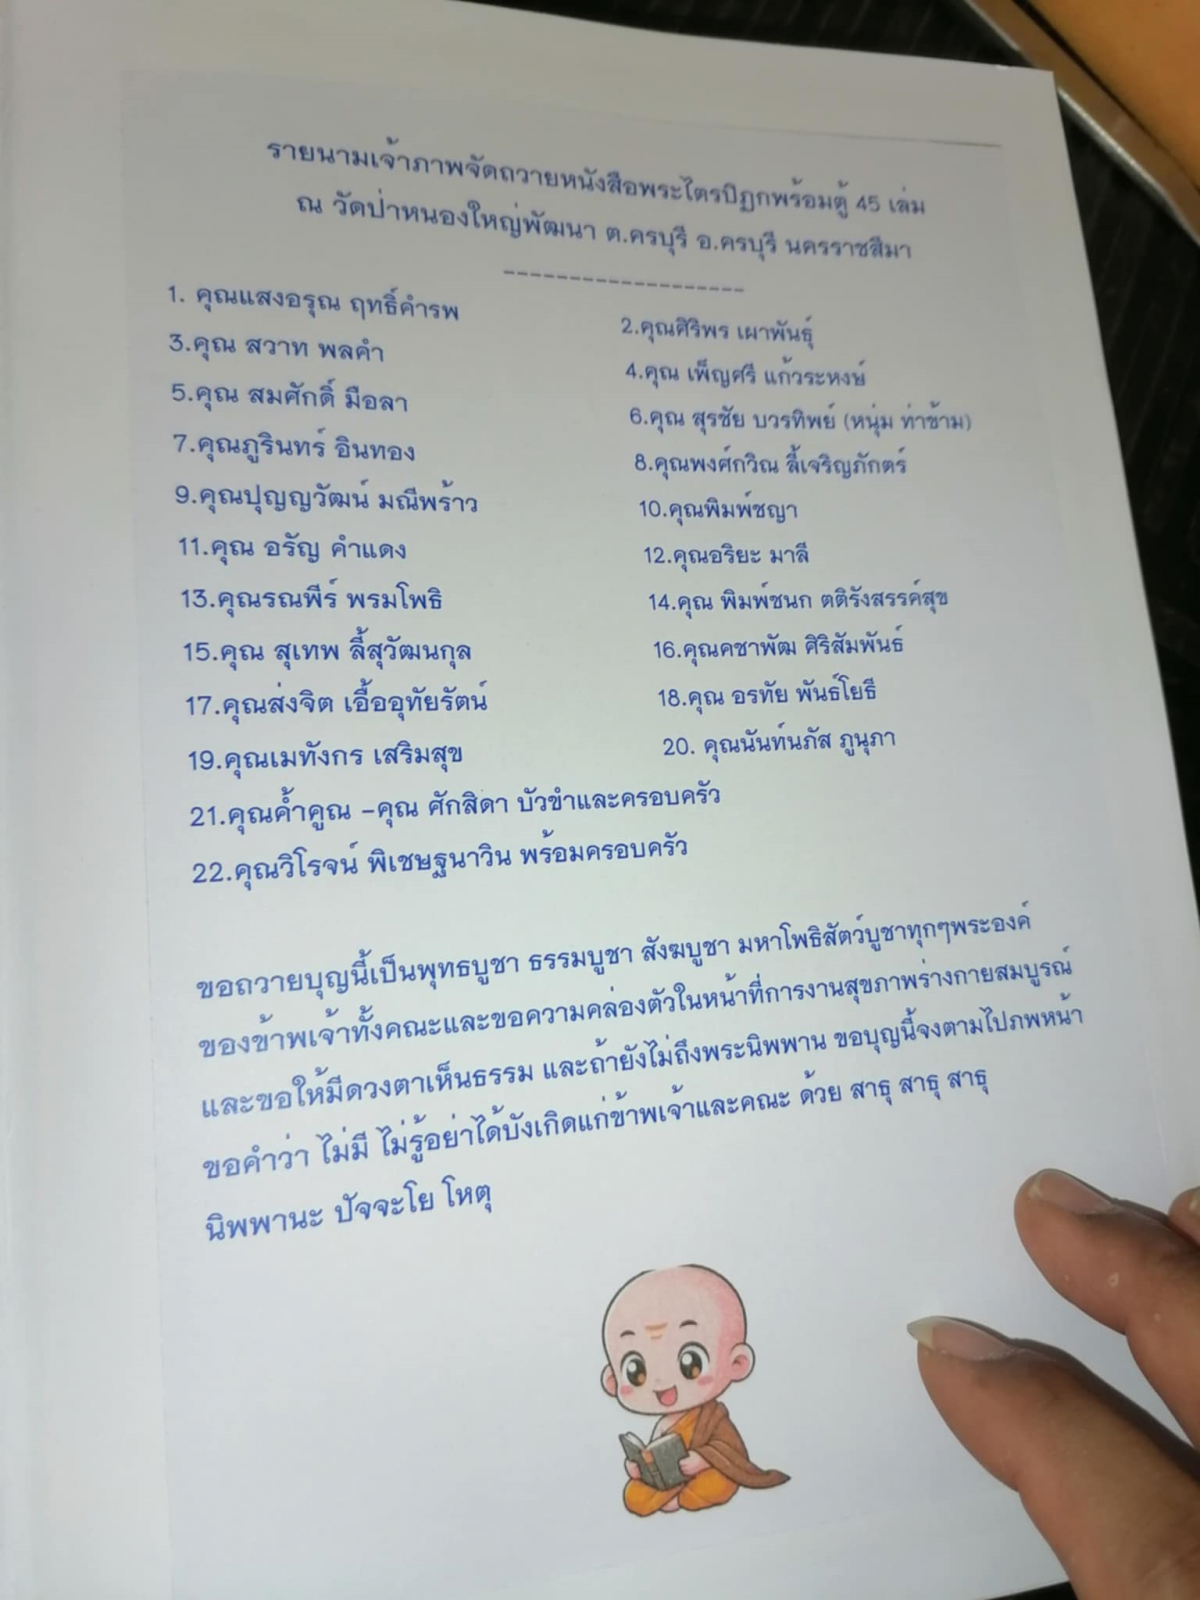 รายนามเจ้าภาพจัดถวายหนังสือพระไตรปิฎกพร้อมตู้ 45 เล่ม
ณ วัดป่าหนองใหญ่พัฒนา ต.ครบุรี อ.ครบุรี นครราชสีมา
-------------------
1. คุณแสงอรุณ ฤทธิ์คำรพ
2.คุณศิริพร เผาพันธุ์
3.คุณ สวาท พลคำ
4.คุณ เพ็ญศรี แก้วระหงษ์
5.คุณ สมศักดิ์ มือลา
6.คุณ สุรชัย บวรทิพย์ (หนุ่ม ท่าข้าม)
7.คุณภูรินทร์ อินทอง
8.คุณพงศ์กวิณ ลี้เจริญภักตร์
9.คุณปุญญวัฒน์ มณีพร้าว
10.คุณพิมพ์ชญา
11.คุณ อรัญ คำแดง
12.คุณอริยะ มาลี
13.คุณรณพีร์ พรมโพธิ
14.คุณ พิมพ์ชนก ตติรังสรรค์สุข
15.คุณ สุเทพ ลี้สุวัฒนกุล
16.คุณคชาพัฒ ศิริสัมพันธ์
17.คุณส่งจิต เอื้ออุทัยรัตน์
18.คุณ อรทัย พันธ์โยธี
19.คุณเมทังกร เสริมสุข
20. คุณนันท์นภัส ภูนุภา
21.คุณค้ำคูณ -คุณ ศักสิดา บัวขำและครอบครัว
22.คุณวิโรจน์ พิเชษฐนาวิน พร้อมครอบครัว
ขอถวายบุญนี้เป็นพุทธบูชา ธรรมบูชา สังฆบูชา มหาโพธิสัตว์บูชาทุกๆพระองค์
ของข้าพเจ้าทั้งคณะและขอความคล่องตัวในหน้าที่การงานสุขภาพร่างกายสมบูรณ์
และขอให้มีดวงตาเห็นธรรม และถ้ายังไม่ถึงพระนิพพาน ขอบุญนี้จงตามไปภพหน้า
ขอคำว่า ไม่มี ไม่รู้อย่าได้บังเกิดแก่ข้าพเจ้าและคณะ ด้วย สาธุ สาธุ สาธุ
นิพพานะ ปัจจะโย โหตุ